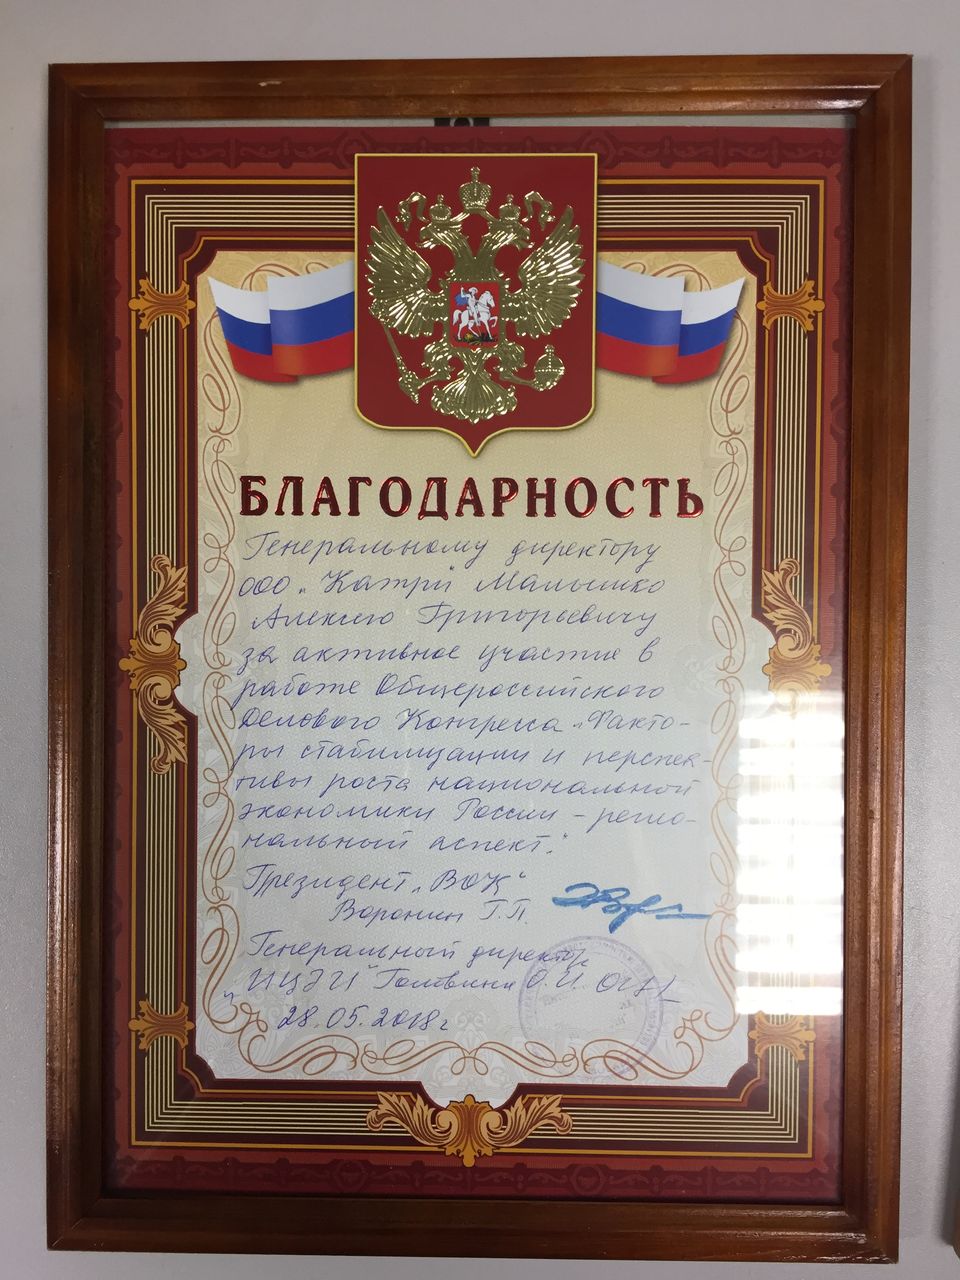 БЛАГОДАРНОСТЬ
Генеральному директору
ООО „Катри" Малышко
Алексею Григорьевичу
за активное участие в
работе Общероссийского
Делового Конгресса „Факто-
ры стабилизации и перспек-
тивы роста национальной
экономики России - регио-
нальный аспект."
Президент „ВОК"
Воронин Г.П.
Генеральный директор
„ИЦЭИ" Головкина О.И.
28.05.2018г